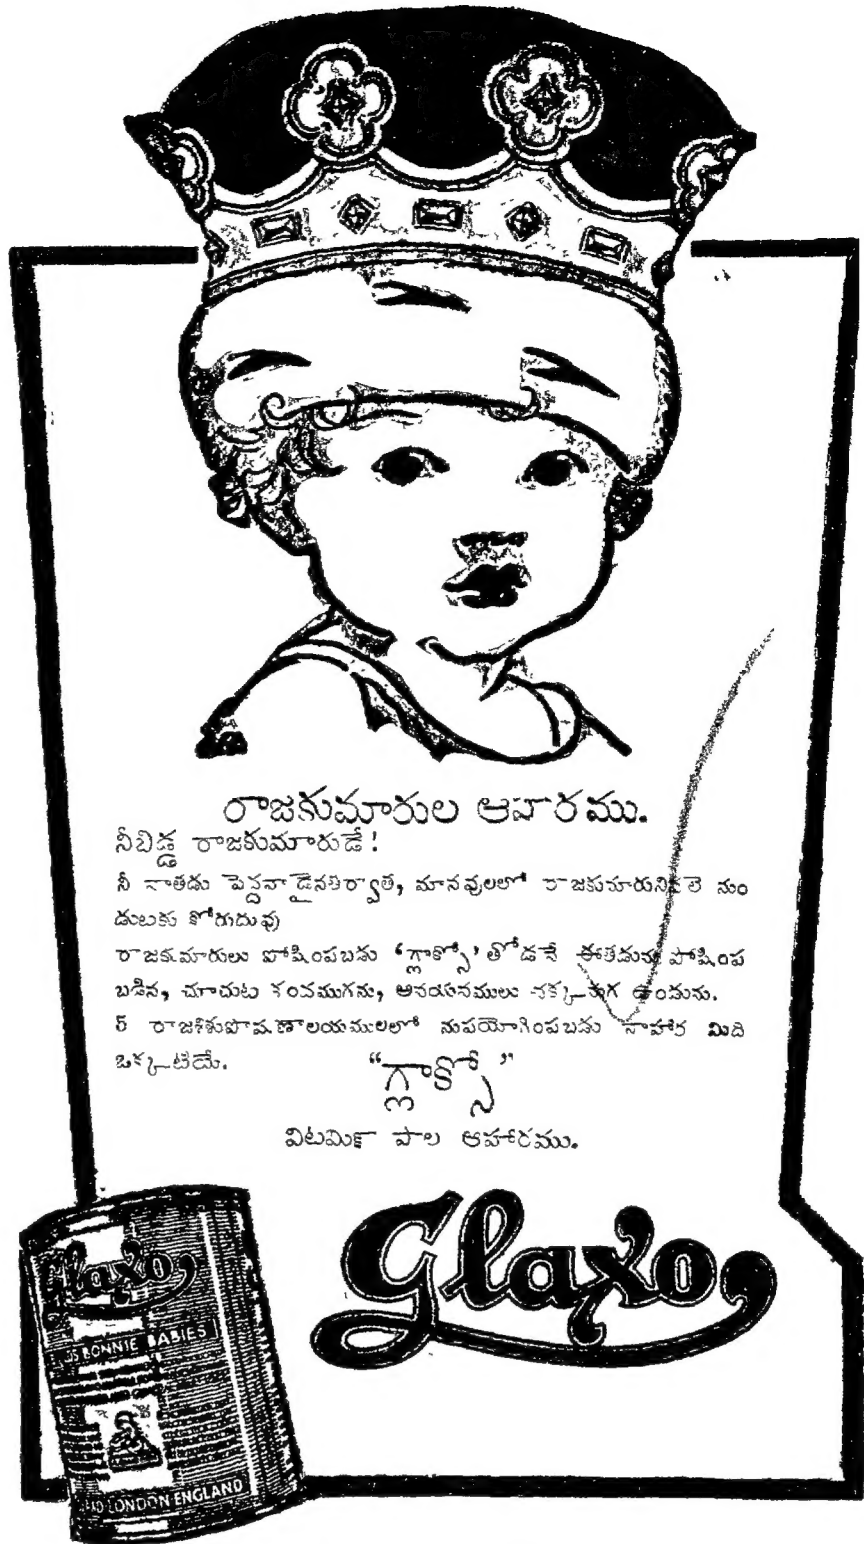 రాజకుమారుల ఆహారము.
నీబిడ్డ రాజకుమారుడే!
నీ నాతడు పెద్దనాడైనతర్వాత, మానవులలో రాజకుమారునివలె నుం
డుటకు కోరుదువు
రాజకుమారులు పోషింపబడు 'గ్లాక్సో' తోడనే ఈతడును పోషింప
బడిన, చూచుట కందముగను, అవయవములు చక్కగ ఉండును.
5 రాజశిశుపోషణాలయములలో నుపయోగింపబడు నాహార మిది
ఒక్కటియే.
"గ్లాక్సో"
విటమిన్ పాల ఆహారము.
Glaxo
Glaxo
BONNIE BABIES
LONDON ENGLAND